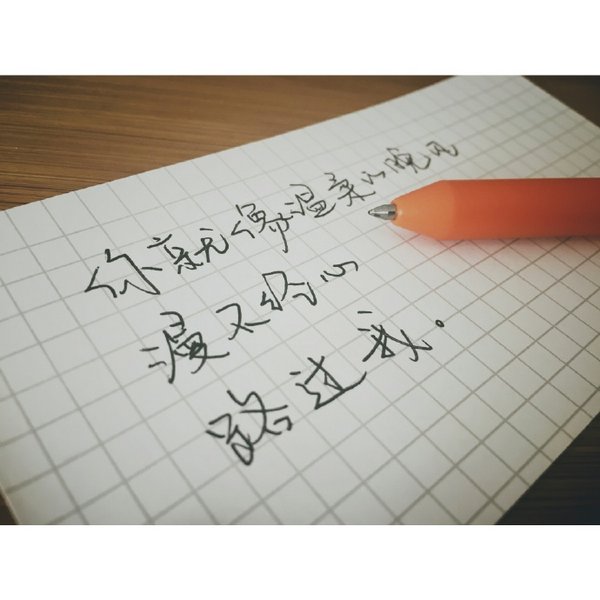 你就像温柔的晚风
漫不经心
路过我.